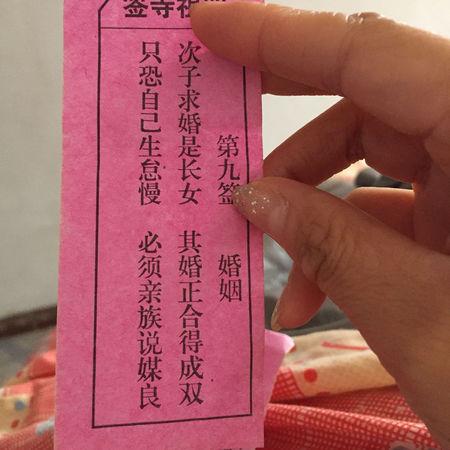 签寺祖
第九签 婚姻
次子求婚是长女 其婚正合得成双
只恐自己生怠慢 必须亲族说媒良